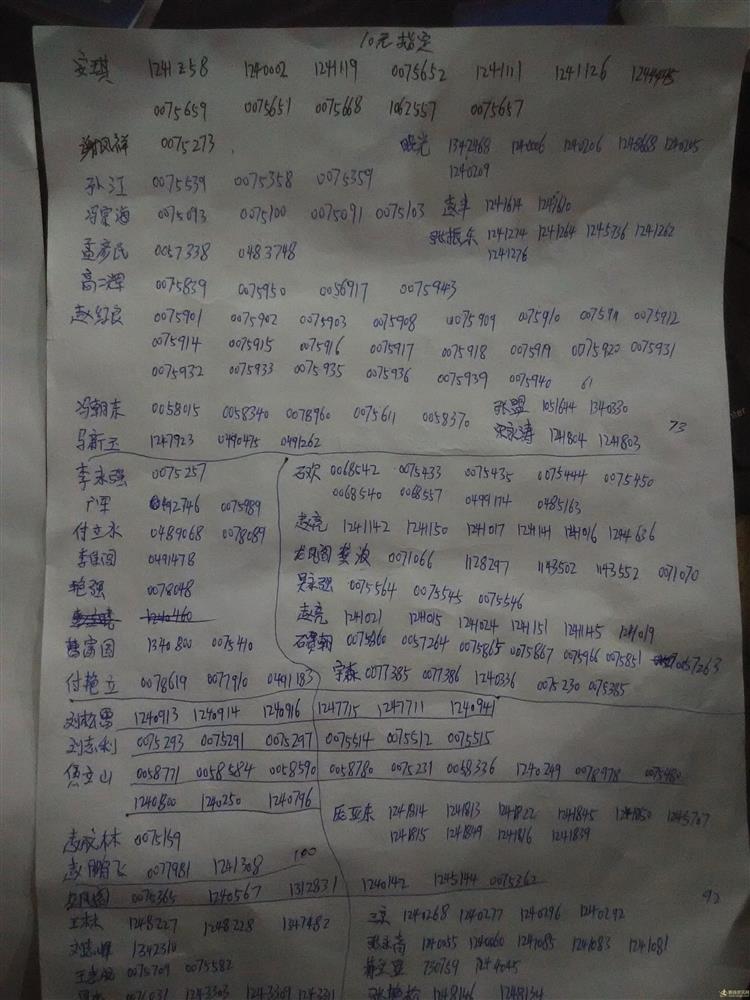 10元指定
安琪 1241258 1240002 1241119 0075652 1241111 1241126 1244445
0075659 0075651 0075668 1062557 0075657
谢凤祥 0075273
晓光 1342468 1240006 1240206 1248668 1240205
1240209
孙江 0075539 0075358 0075359
冯宗海 0075093 0075100 0075091 0075103
赵丰 1241614 1241610
张振东 1241274 1241264 1245736 1241262
1241276
孟彦民 0057338 0483748
高二辉 0075839 0075950 0056917 0075943
赵红良 0075901 0075902 0075903 0075908 0075909 0075910 0075911 0075912
0075914 0075915 0075916 0075917 0075918 0075919 0075920 0075931
0075932 0075933 0075935 0075936 0075939 0075940 61
冯朝东 0058015 0058340 0078960 0075611 0058370
张盟 1051644 1340330
73
马新玉 1247923 0490475 0491262
宋永涛 1241804 1241803
李永强 0075257
2746 0075989
付立水 0489068 0078089
李佳园 0491478
艳强 0078048
1240460
曹富国 1340800 0075410
付艳立 0078619 0077910 0491183
石欢 0068542 0075433 0075435 0075444 0075450
0068540 0068557 0499174 0485163
赵亮 1241142 1241150 1241017 1241141 1241016 1244636
龙凤阁 樊波 0071066 1128297 1143502 1143552 0071070
吴永强 0075564 0075545 0075546
赵亮 1241021 124015 1241024 1241151 1241145 1241019
石贺朝 0075860 0057264 0075865 0075867 0075966 0075851 0057263
宇森 0077385 0077386 1240336 0075230 0075385
刘松雷 1240913 1240914 1240916 1247715 1247711 1240941
刘志利 0075293 0075291 0075297 0075514 0075512 0075515
焦立山 0058771 0058584 0058590 0058780 0075231 0058336 1240249 0078978 0075480
1240800 1240250 1240796
庞亚东 1241814 1241813 1241822 1241845 1241850 1245707
1241815 1241849 1241816 1241839
赵成林 0075159
赵鹏飞 0077981 1241308 100
凤阁 0075365 1240567 1312831 1240142 1245144 0075362
92
王林 1248227 1248228 1347482
刘志辉 1342310
0075709 0075582
0076031 1243303 1243309
三京 1240268 1240277 1240296 1240292
张玉高 1240055 1240060 1241085 1241083 1241081
730759
张艳松 1248146 1248134